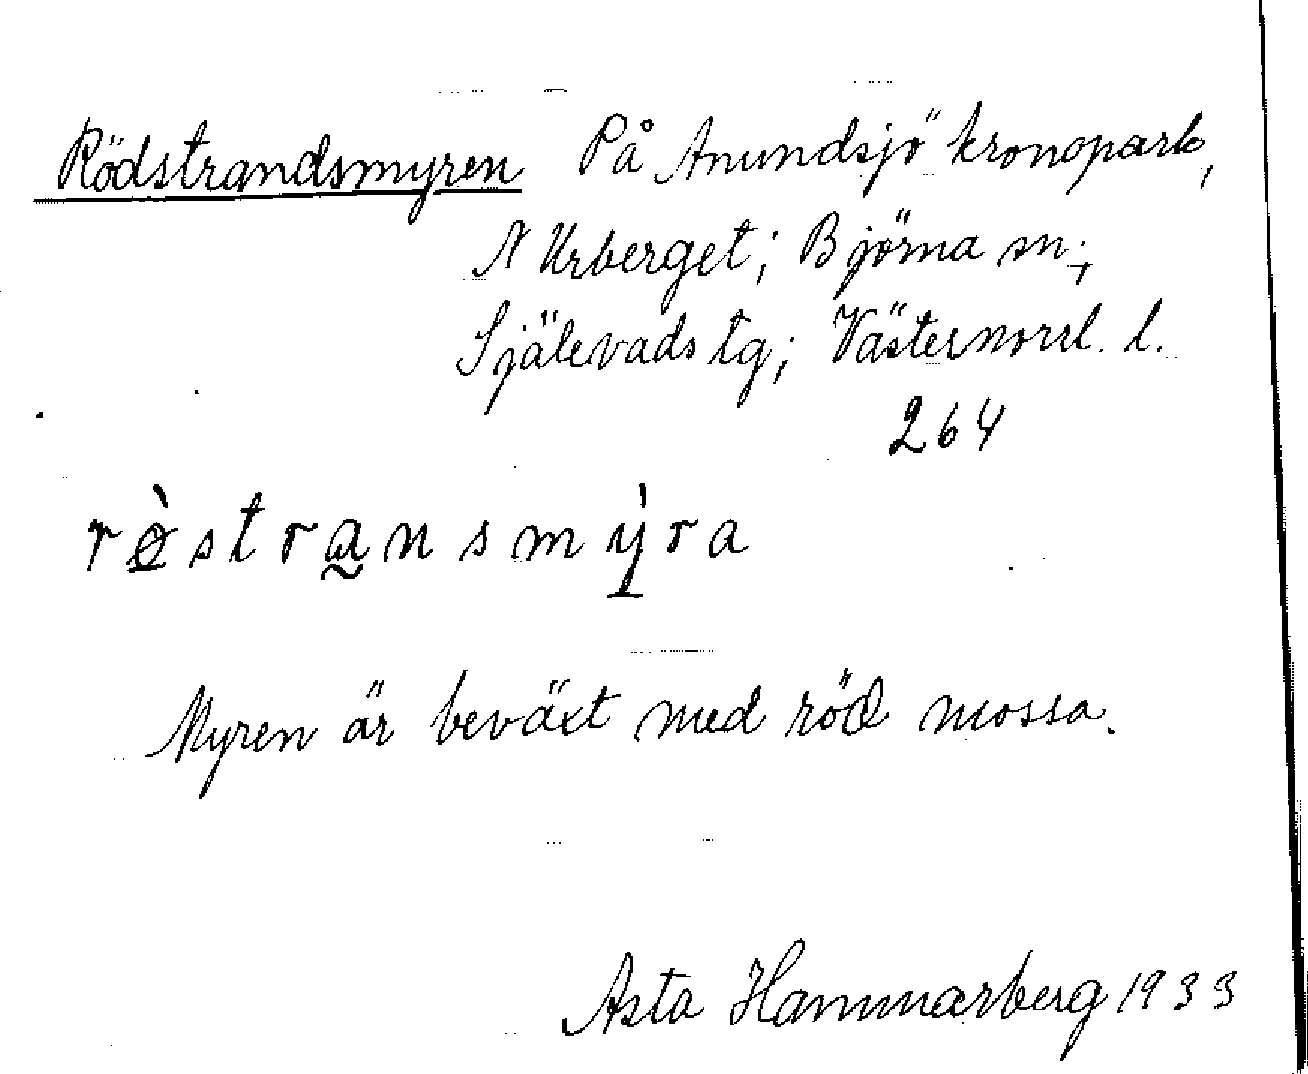 Rödstrandsmyren På Anundsjö kronopark,
N Urberget; Björna sn;
Själevads tg; Västernorrl. l.
264
rø̀stra̰nsmẏ̱ra
Myren är beväxt med röd mossa.
Asta Hammarberg 1933